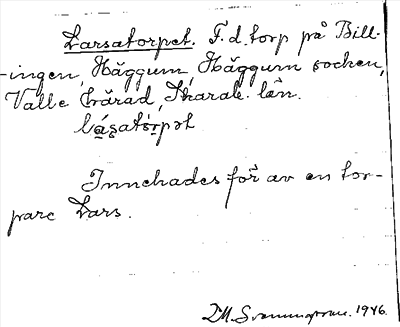 Larsatorpet. F.d. torp på Bill-
-ingen, Häggum, Häggum socken,
Valle härad, Skarab. län.
lásatòrpət
Innehades för av en tor-
pare Lars.
1946.